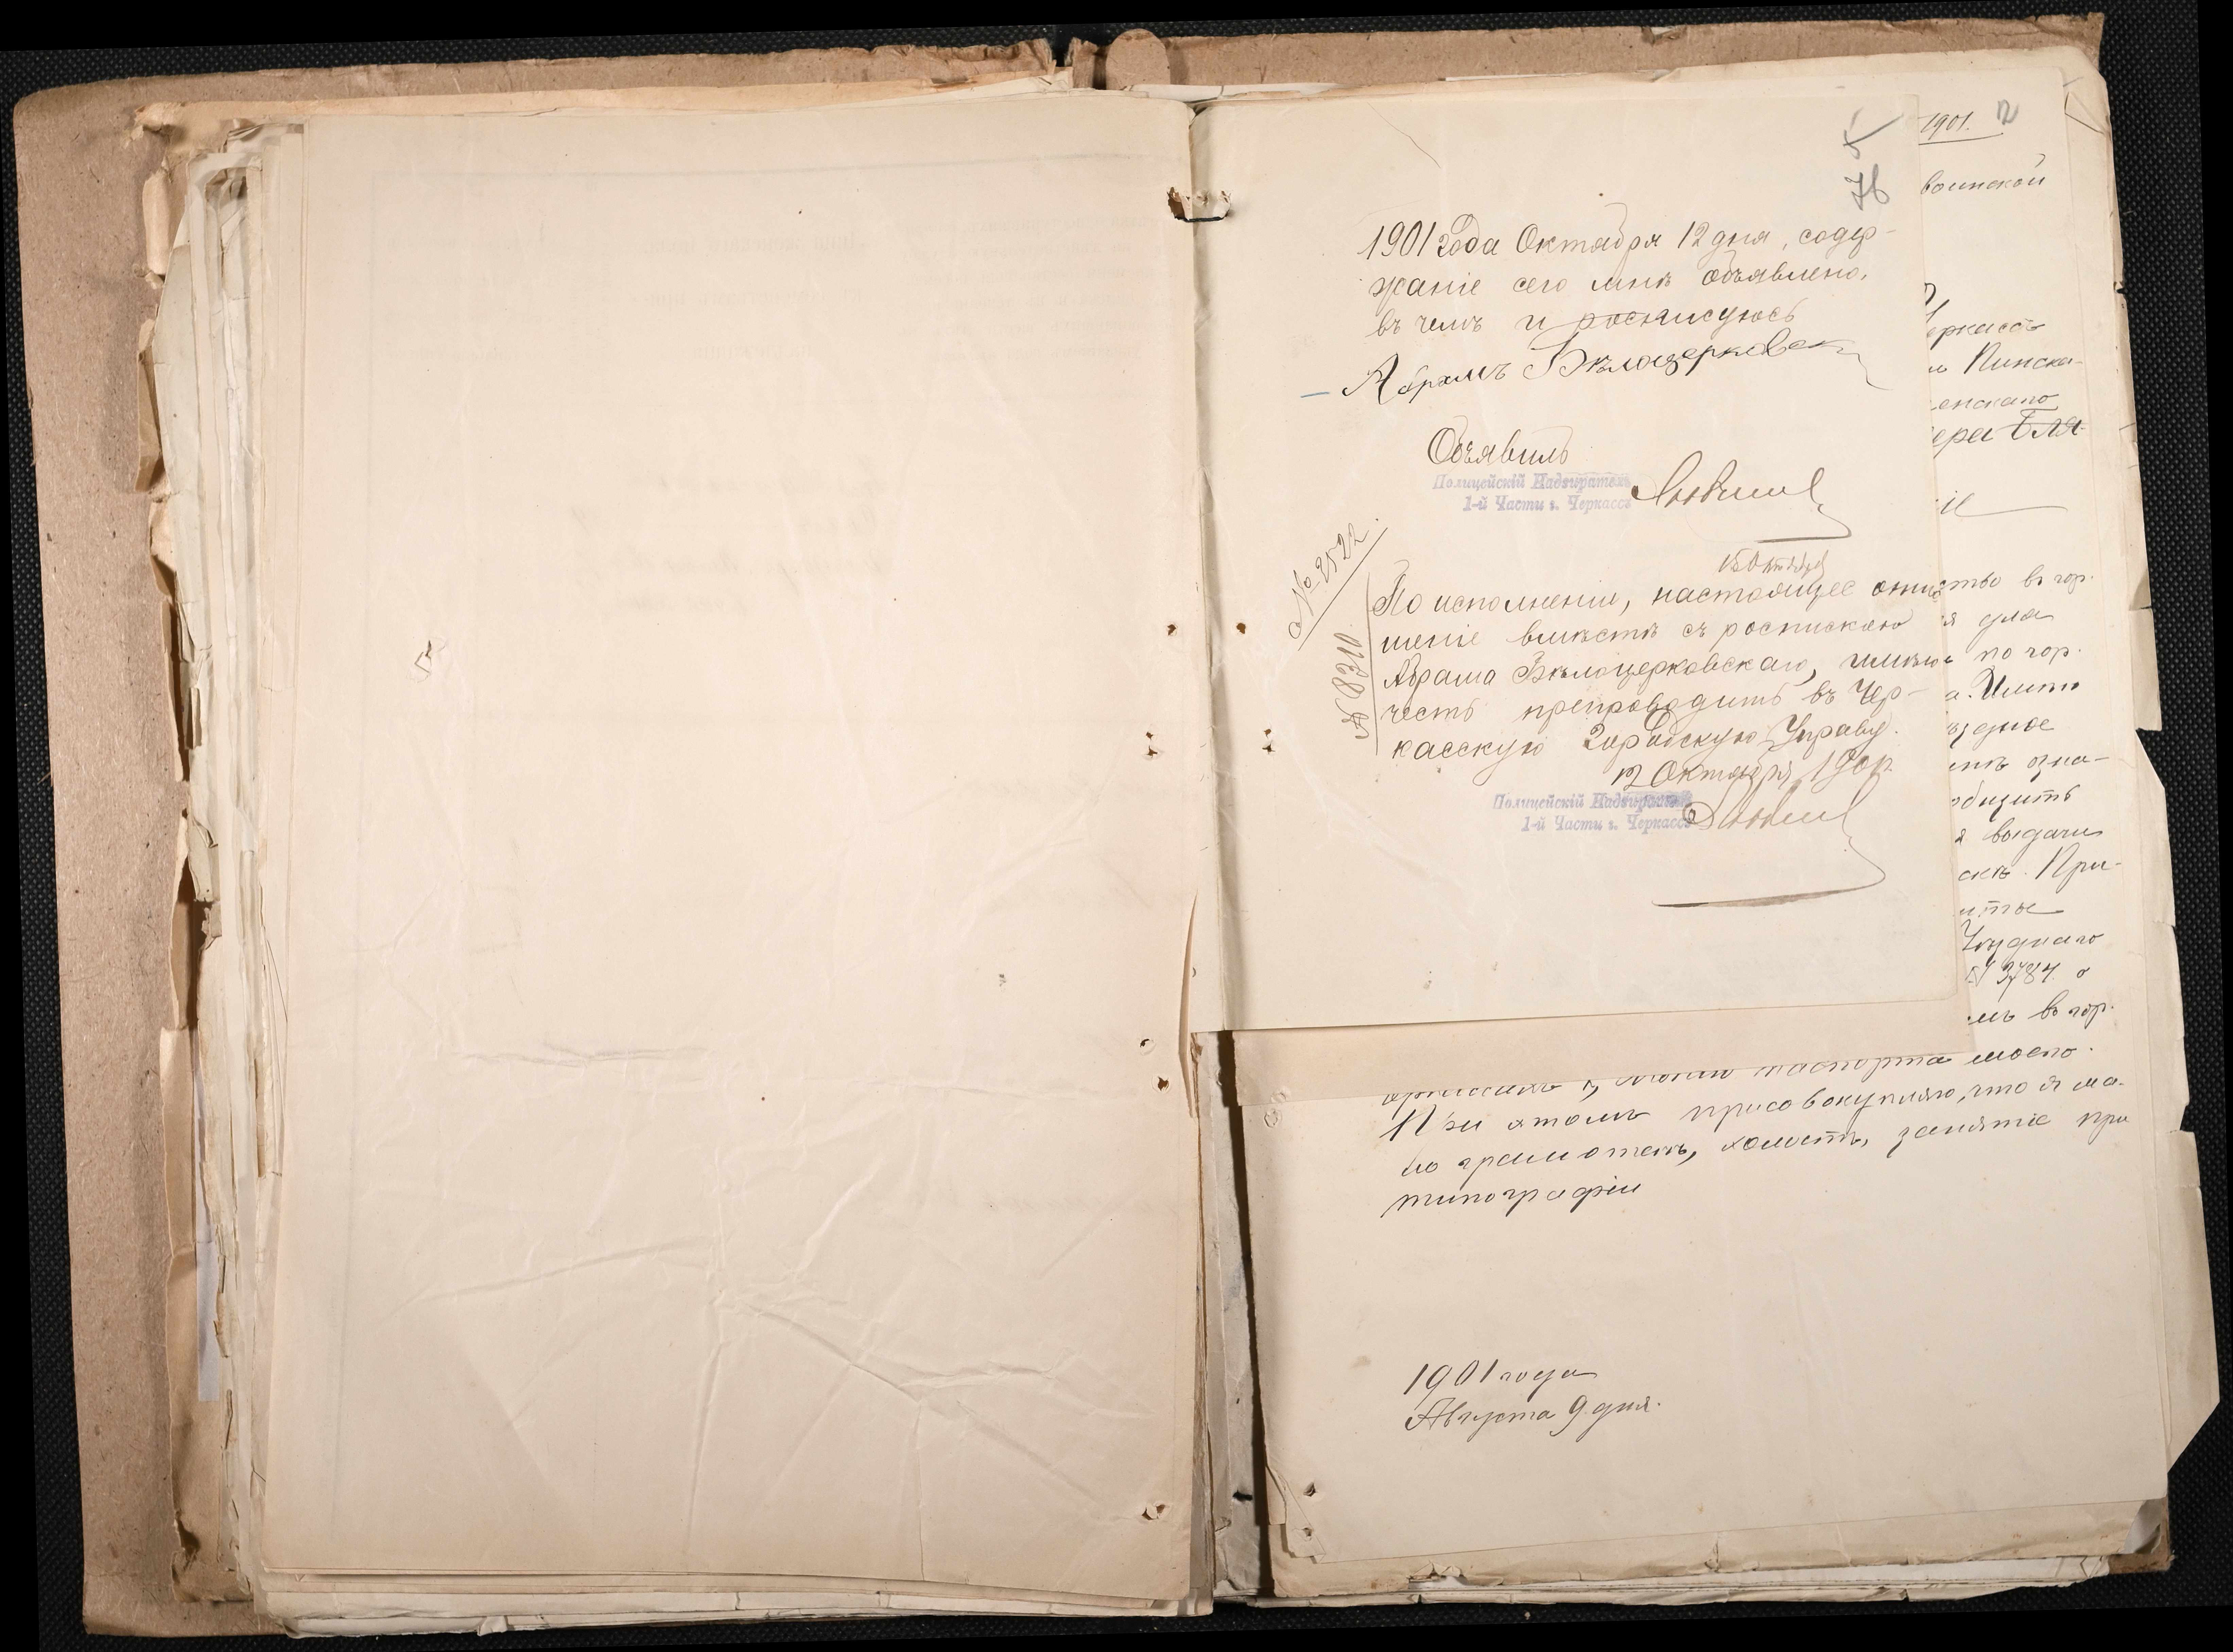 76
1901 года Октября 12 дня, содер-
жаніе сего мнѣ объявлено,
въ чемъ и роспи­суюсь
Абрамъ Бѣлоцерковск
Объявилъ
Полицейскій Надзиратель
1-й Части г. Черкассъ
№ 2522
№ 8310
15 Октября
По исполненіи, настоящее отно
шеніе вмѣстѣ съ роспискою
Абрама Бѣлоцерковскаго, имѣю
честь препроводить въ Чер-
касскую Городскую Управу.
12 Октября 1901 г.
Полицейскій Надзиратель
1-й Части г. Черкассъ
1901. 12
воинской
еркассъ
Пинска-
енскаго
ера Бля-
ство въ гор.
я для
по гор.
а. Имѣю
ѣздное
озна-
выдачи
скѣ. При-
Уѣзднаго
№ 3784 о
мъ въ гор.
паспорта моего.
При этомъ присовокупляю, что я ма-
ло грамотенъ, холостъ, занятіе при
типографіи
1901 года
Августа 9 дня.